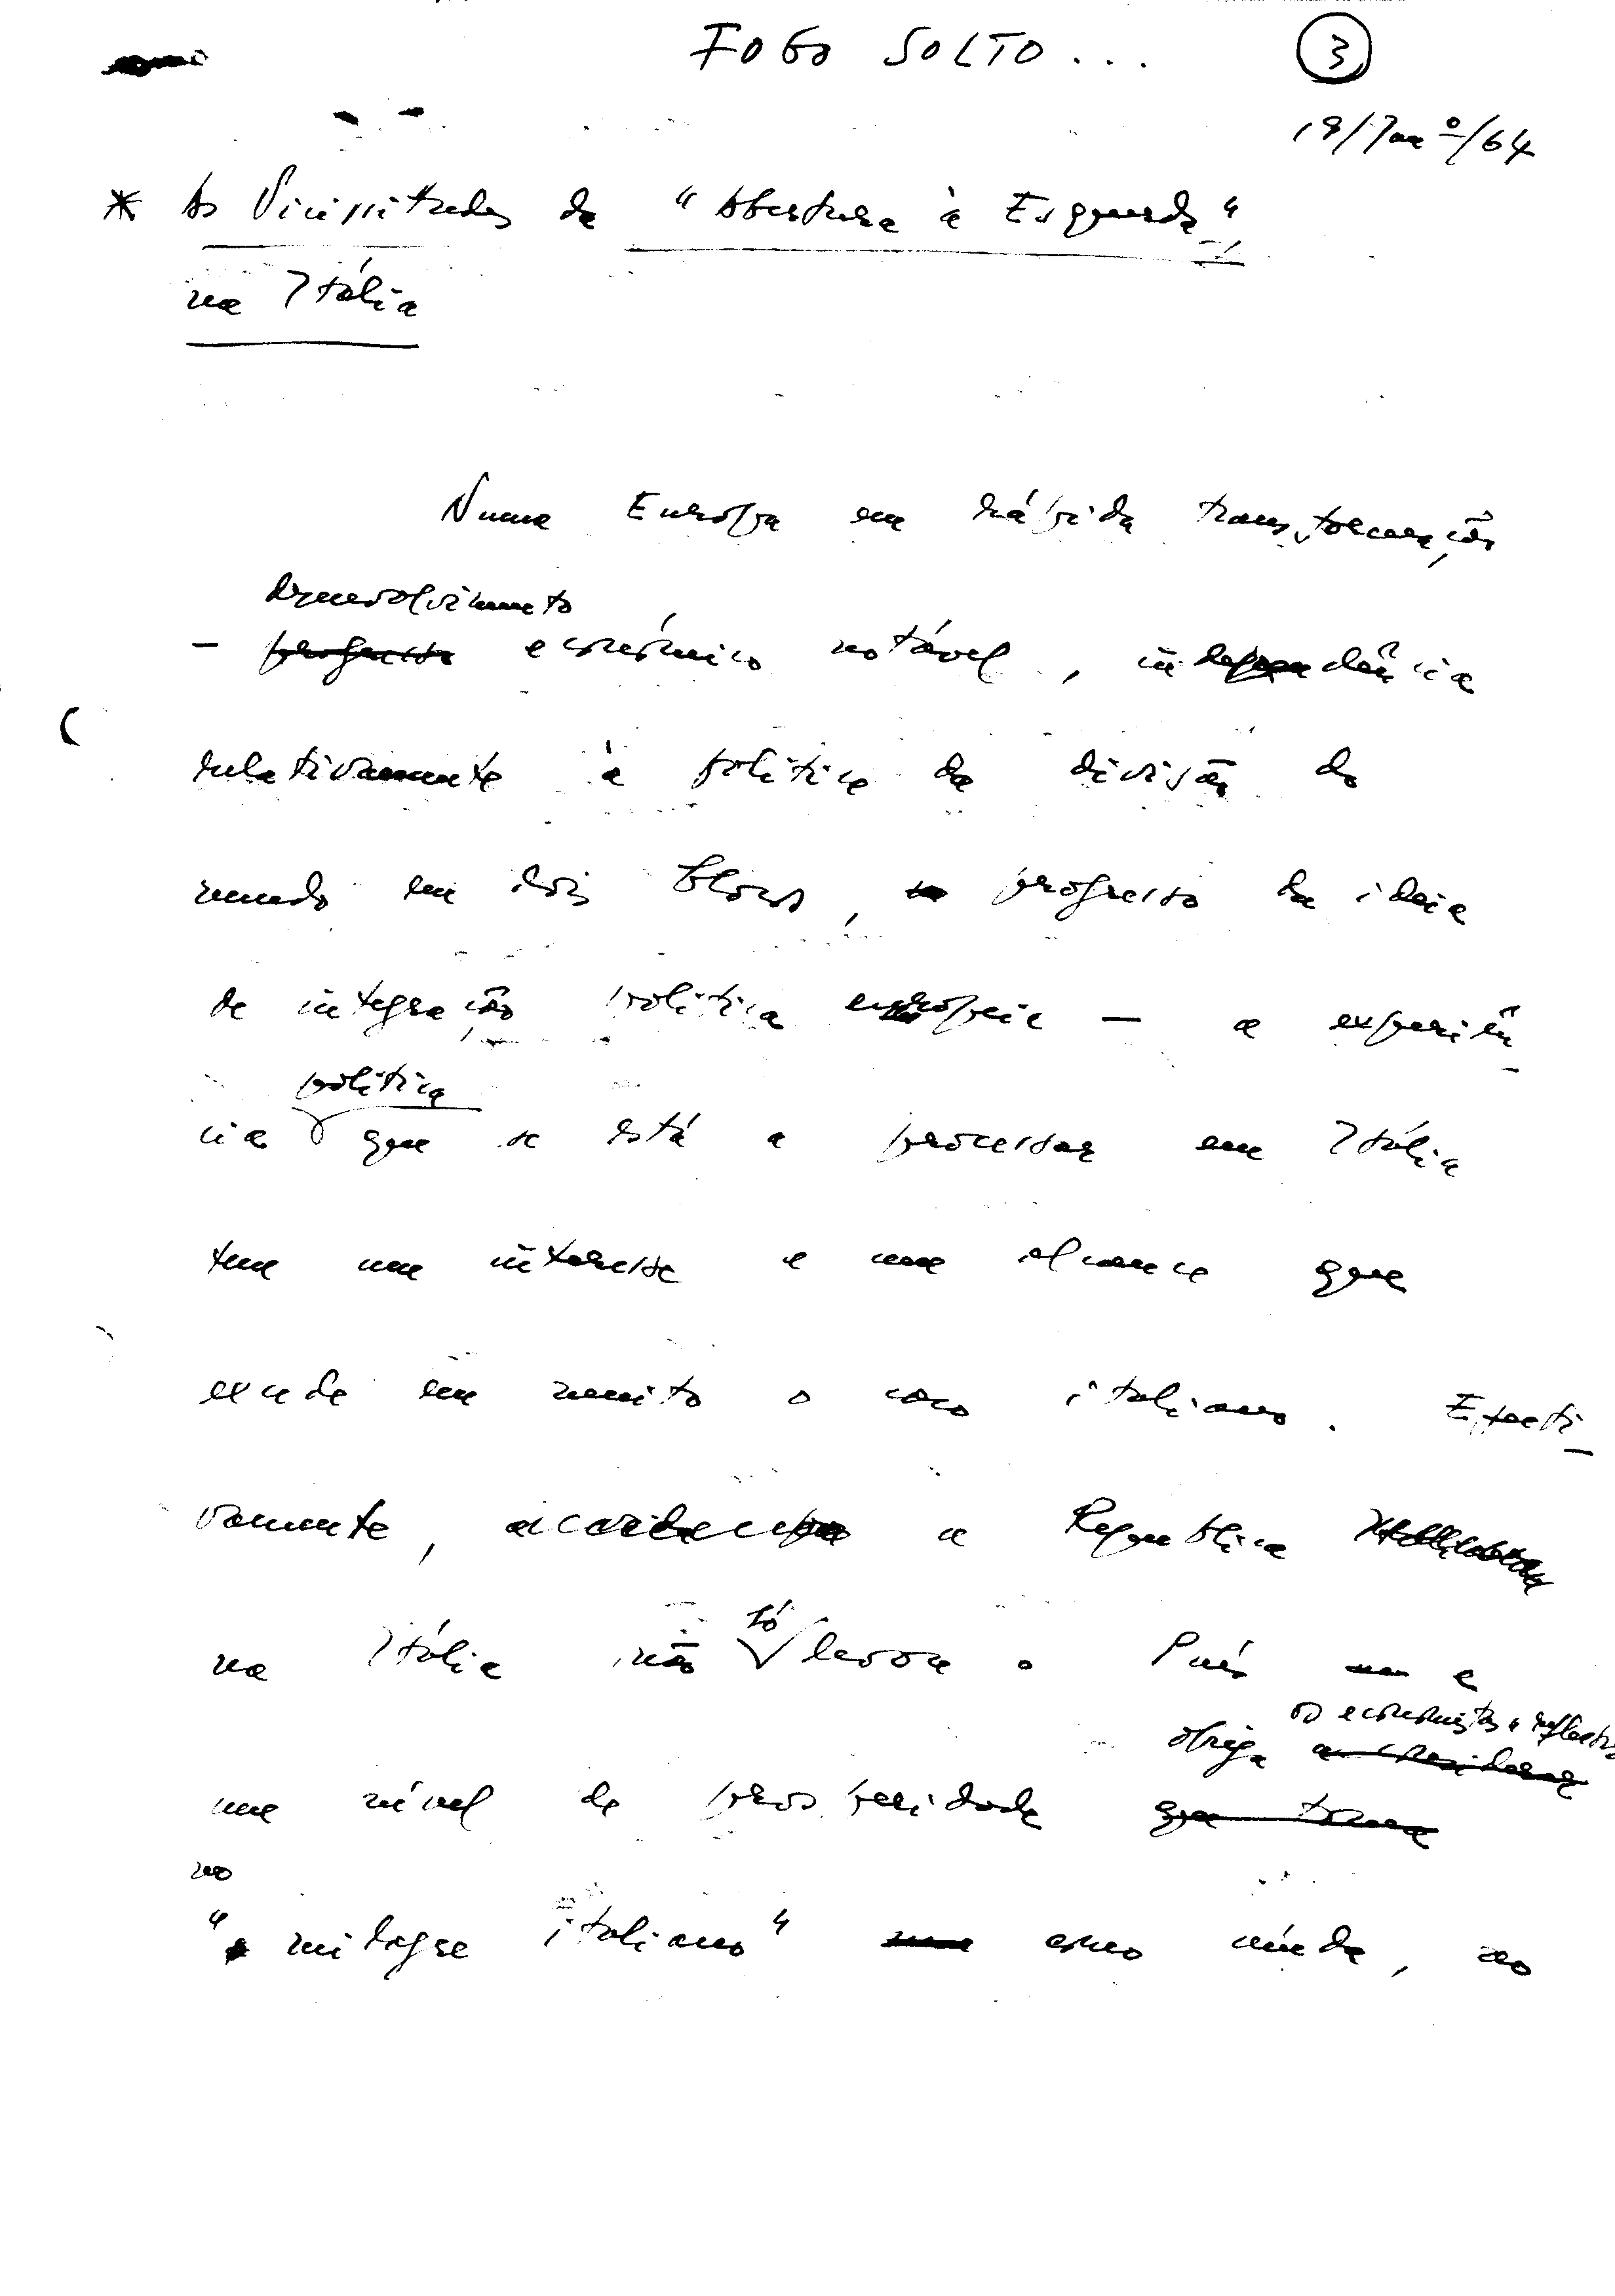 FOGO SOLTO...
3
19/Janº/64
* As Vicissitudes da "Abertura à Esquerda"
na Itália
Numa Europa em rápida transformação
desenvolvimento
- progresso económico notável, independência
relativamente à política da divisão do
mundo em dois blocos, progresso da ideia
de integração política europeia — a experiên-
política
cia que se está a processar em Itália
tem um interesse e um alcance que
excede em muito o caso italiano. Efecti-
vamente, a República
só
na Itália não levou o País a
os economistas a reflectir
obriga a considerar
um nível de prosperidade que torna
no
"milagre italiano" como ainda, no